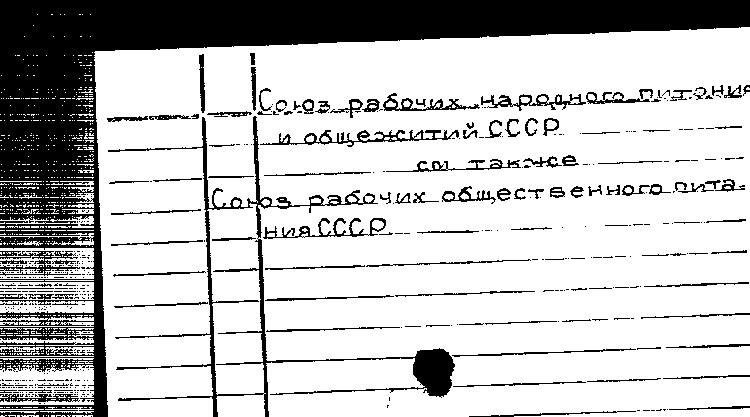 Союз рабочих народного питания
и общежитий СССР
см также
Союз рабочих общественного пита-
ния СССР